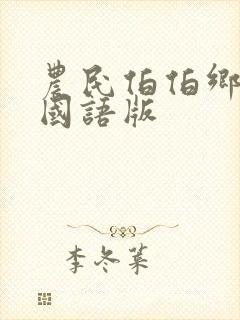 農民伯伯鄉
國語版
李冬菜